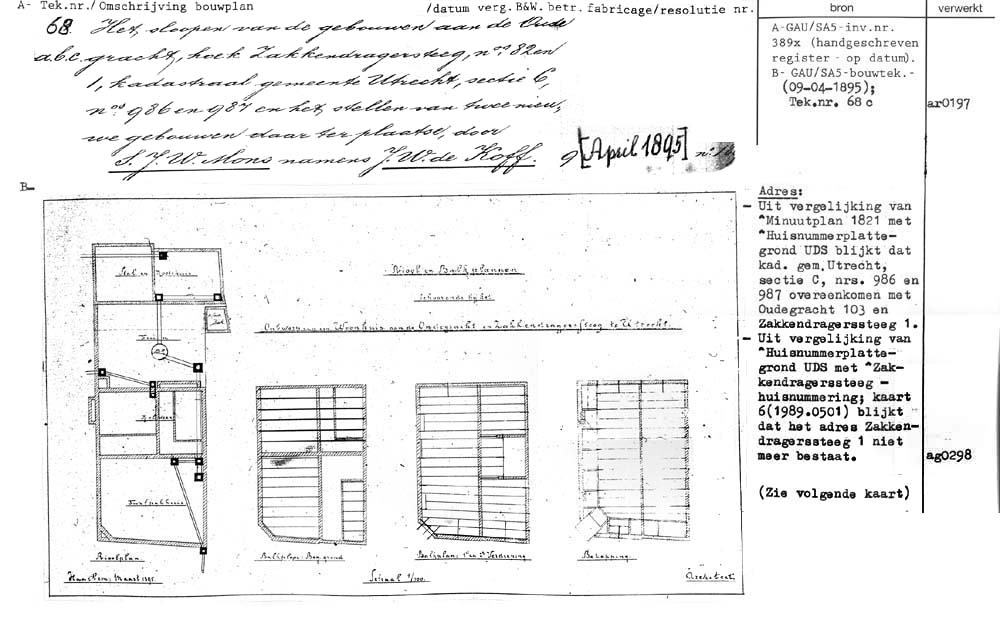 A- Tek.nr./Omschrijving bouwplan /datum verg.B&W.betr.fabricage/resolutie nr.
bron
verwerkt
68. Het sloopen van de gebouwen aan de Oude
a.b.c. gracht, hoek Zakkendragersteeg, nos. 82 en
1, kadastraal gemeente Utrecht, sectie C,
nos 986 en 987 en het stellen van twee nieu-
we gebouwen daar ter plaatse, door
S. J. W. Mons namens J. W. de Koff. 9 [April 1895]
A-GAU/SA5-inv.nr.
389x (handgeschreven
register - op datum).
B- GAU/SA5-bouwtek.-
(09-04-1895);
Tek.nr. 68 c
ar0197
B-
Adres:
- Uit vergelijking van
*Minuutplan 1821 met
*Huisnummerplatte-
grond UDS blijkt dat
kad. gem. Utrecht,
sectie C, nrs. 986 en
987 overeenkomen met
Oudegracht 103 en
Zakkendragerssteeg 1.
- Uit vergelijking van
*Huisnummerplatte-
grond UDS met *Zak-
kendragerssteeg -
huisnummering; kaart
6(1989.0501) blijkt
dat het adres Zakken-
dragerssteeg 1 niet
meer bestaat.
ag0298
(Zie volgende kaart)
Riool en Balkplannen
behoorende bij het
Ontwerp van een Woonhuis aan de Oudegracht en Zakkendragerssteeg te Utrecht.
Rioolplan
Balkplan: Beg. grond
Balkplan: 1e en 2e Verdieping
Bekapping.
Haarlem, Maart 1895
Schaal 1/100.
Architect